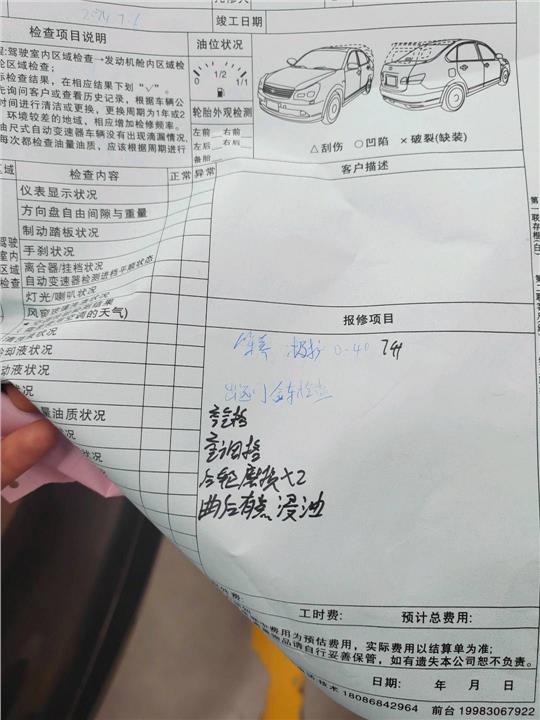 2024.7.6
竣工日期
检查项目说明
油位状况
程:驾驶室内区域检查→发动机舱内区域检
轮区域检查;
际检查结果，在相应结果下划“√”。
先询问客户或查看历史记录，根据车辆公
时间进行清洁或更换，更换周期为1年或2
环境较差的地域，相应增加检修频率。
油尺式自动变速器车辆没有出现滴漏情况,
每次都检查油量油质，应该根据周期进行
0 1/2 1/1
轮胎外观检测
左前 右前
左后 右后
备胎
△刮伤 ○凹陷 ×破裂(缺装)
区域 检查内容 正常 异常
客户描述
驾驶室内区域检查
仪表显示状况
方向盘自由间隙与重量
制动踏板状况
手刹状况
离合器/挂档状况
自动变速器检测进档平顺状态
灯光/喇叭状况
空调的天气)
状况
冷却液状况
动液状况
状况
量油质状况
状况
报修项目
保养 0-40 7升
出远门全车检查
后轮磨损×2
曲后有点浸油
费:
工时费: 预计总费用:
费用为预估费用，实际费用以结算单为准;
物品请自行妥善保管，如有遗失本公司恕不负责。
日期: 年 月 日
技术 18086842964 前台 19983067922
第一联存根(白)
第二联